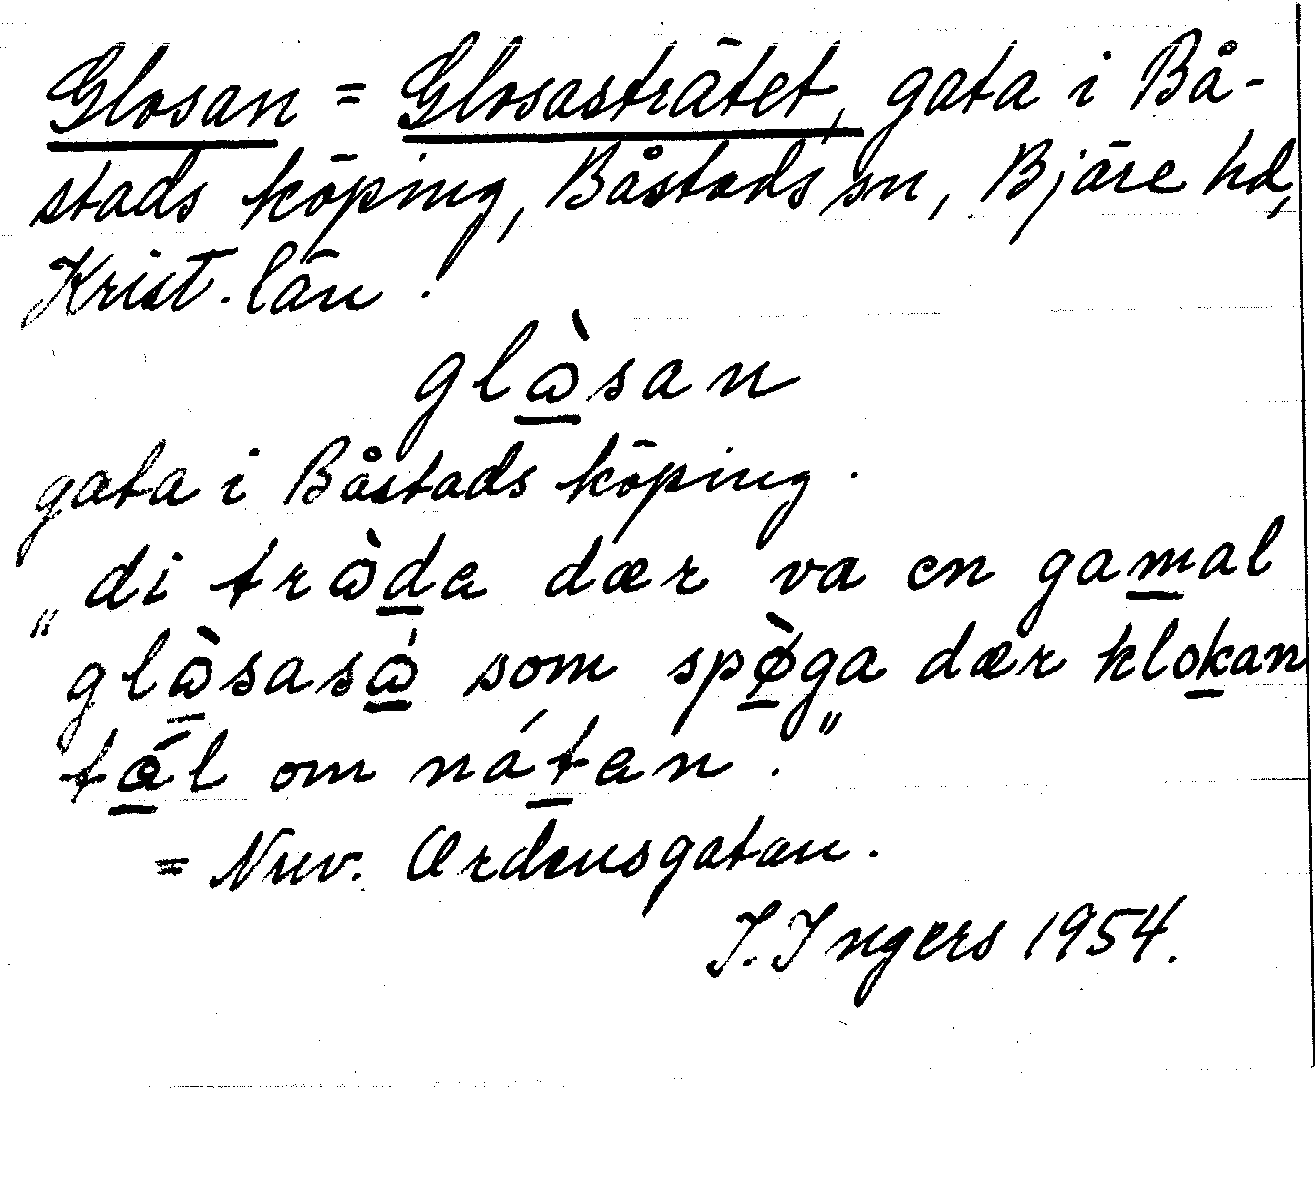 Glosan = Glosasträtet, gata i Bå-
stads köping, Båstads sn, Bjäre hd,
Krist. län.
glὼsan
gata i Båstads köping.
„di trὼda dær va en gamal
glὼsasώ som spø̀ga dær klokan
tǽl om nátan."
= Nuv. Ordensgatan.
I. Ingers 1954.